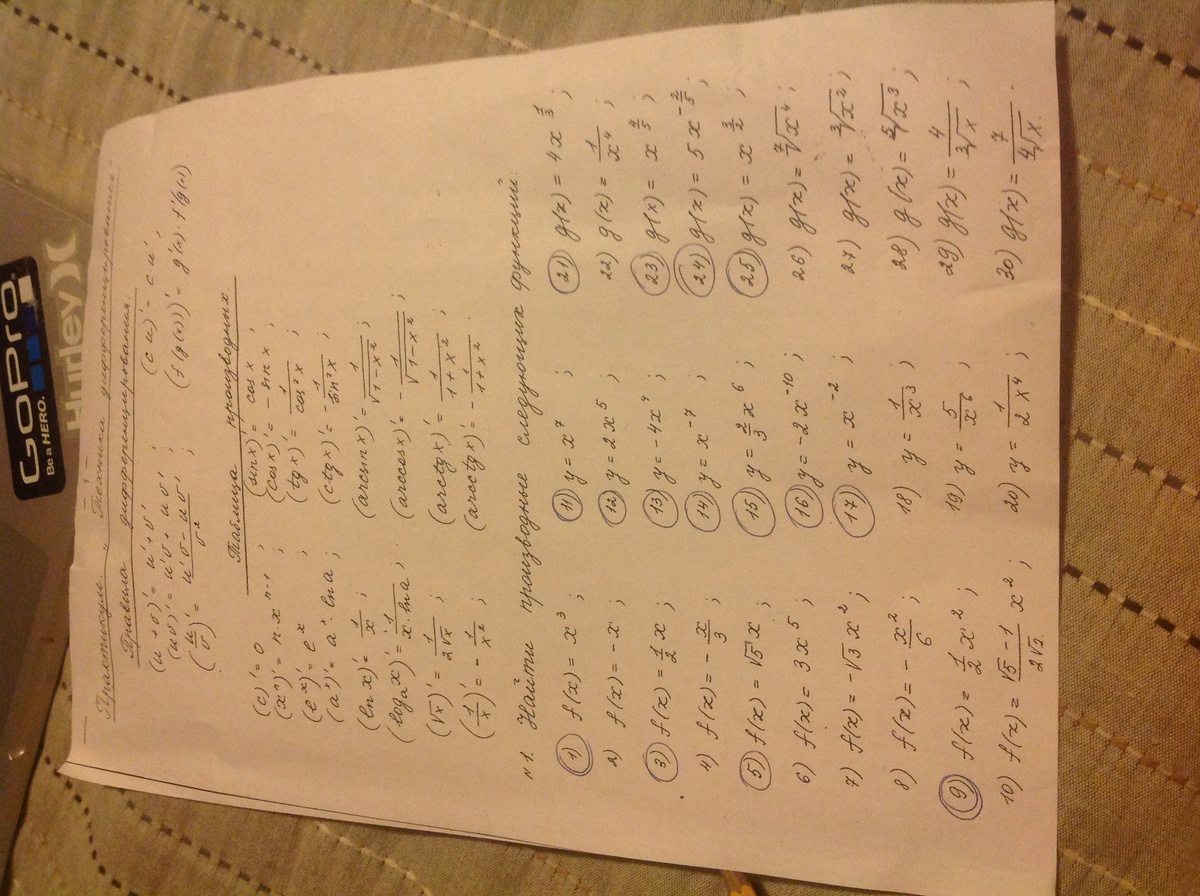 GoPro
Be a HERO.
Hurley
Практикум. „Техника дифференцирования"
Правила дифференцирования.
(u+v)' = u'+v' ; (cu)' = cu' ;
(uv)' = u'v + uv' ; (f(g(x)))' = g'(x) · f'(g(x))
(u/v)' = (u'v - uv')/v² ;
Таблица производных
(c)' = 0 (sin x)' = cos x ;
(xⁿ)' = n·xⁿ⁻¹ ; (cos x)' = - sin x ;
(eˣ)' = eˣ ; (tg x)' = 1/cos²x ;
(aˣ)' = aˣ·ln a ; (ctg x)' = - 1/sin²x ;
(ln x)' = 1/x ; (arcsin x)' = 1/√(1-x²) ;
(logₐx)' = 1/(x·ln a) ; (arccos x)' = - 1/√(1-x²) ;
(√x)' = 1/(2√x) ; (arctg x)' = 1/(1+x²) ;
(1/x)' = - 1/x² ; (arcctg x)' = - 1/(1+x²) .
№1. Найти производные следующих функций:
1) f(x) = x³ ; 11) y = x⁷ ; 21) g(x) = 4x^(1/3) ;
2) f(x) = -x ; 12) y = 2x⁵ ; 22) g(x) = 1/x⁴ ;
3) f(x) = 1/2 x ; 13) y = -4x⁴ ; 23) g(x) = x^(4/5) ;
4) f(x) = - x/3 ; 14) y = x⁻⁷ ; 24) g(x) = 5x^(-2/5) ;
5) f(x) = √5 x ; 15) y = 2/3 x⁶ ; 25) g(x) = x^(3/2) ;
6) f(x) = 3x⁵ ; 16) y = -2x⁻¹⁰ ; 26) g(x) = ⁷√x⁴ ;
7) f(x) = -√3 x² ; 17) y = x⁻² ; 27) g(x) = ³√x² ;
8) f(x) = - x²/6 ; 18) y = 1/x³ ; 28) g(x) = ⁵√x³ ;
9) f(x) = 1/2 x² ; 19) y = 5/x⁶ ; 29) g(x) = 4/³√x ;
10) f(x) = (√5-1)/(2√2) x² ; 20) y = 1/(2x⁴) ; 30) g(x) = 7/⁴√x .